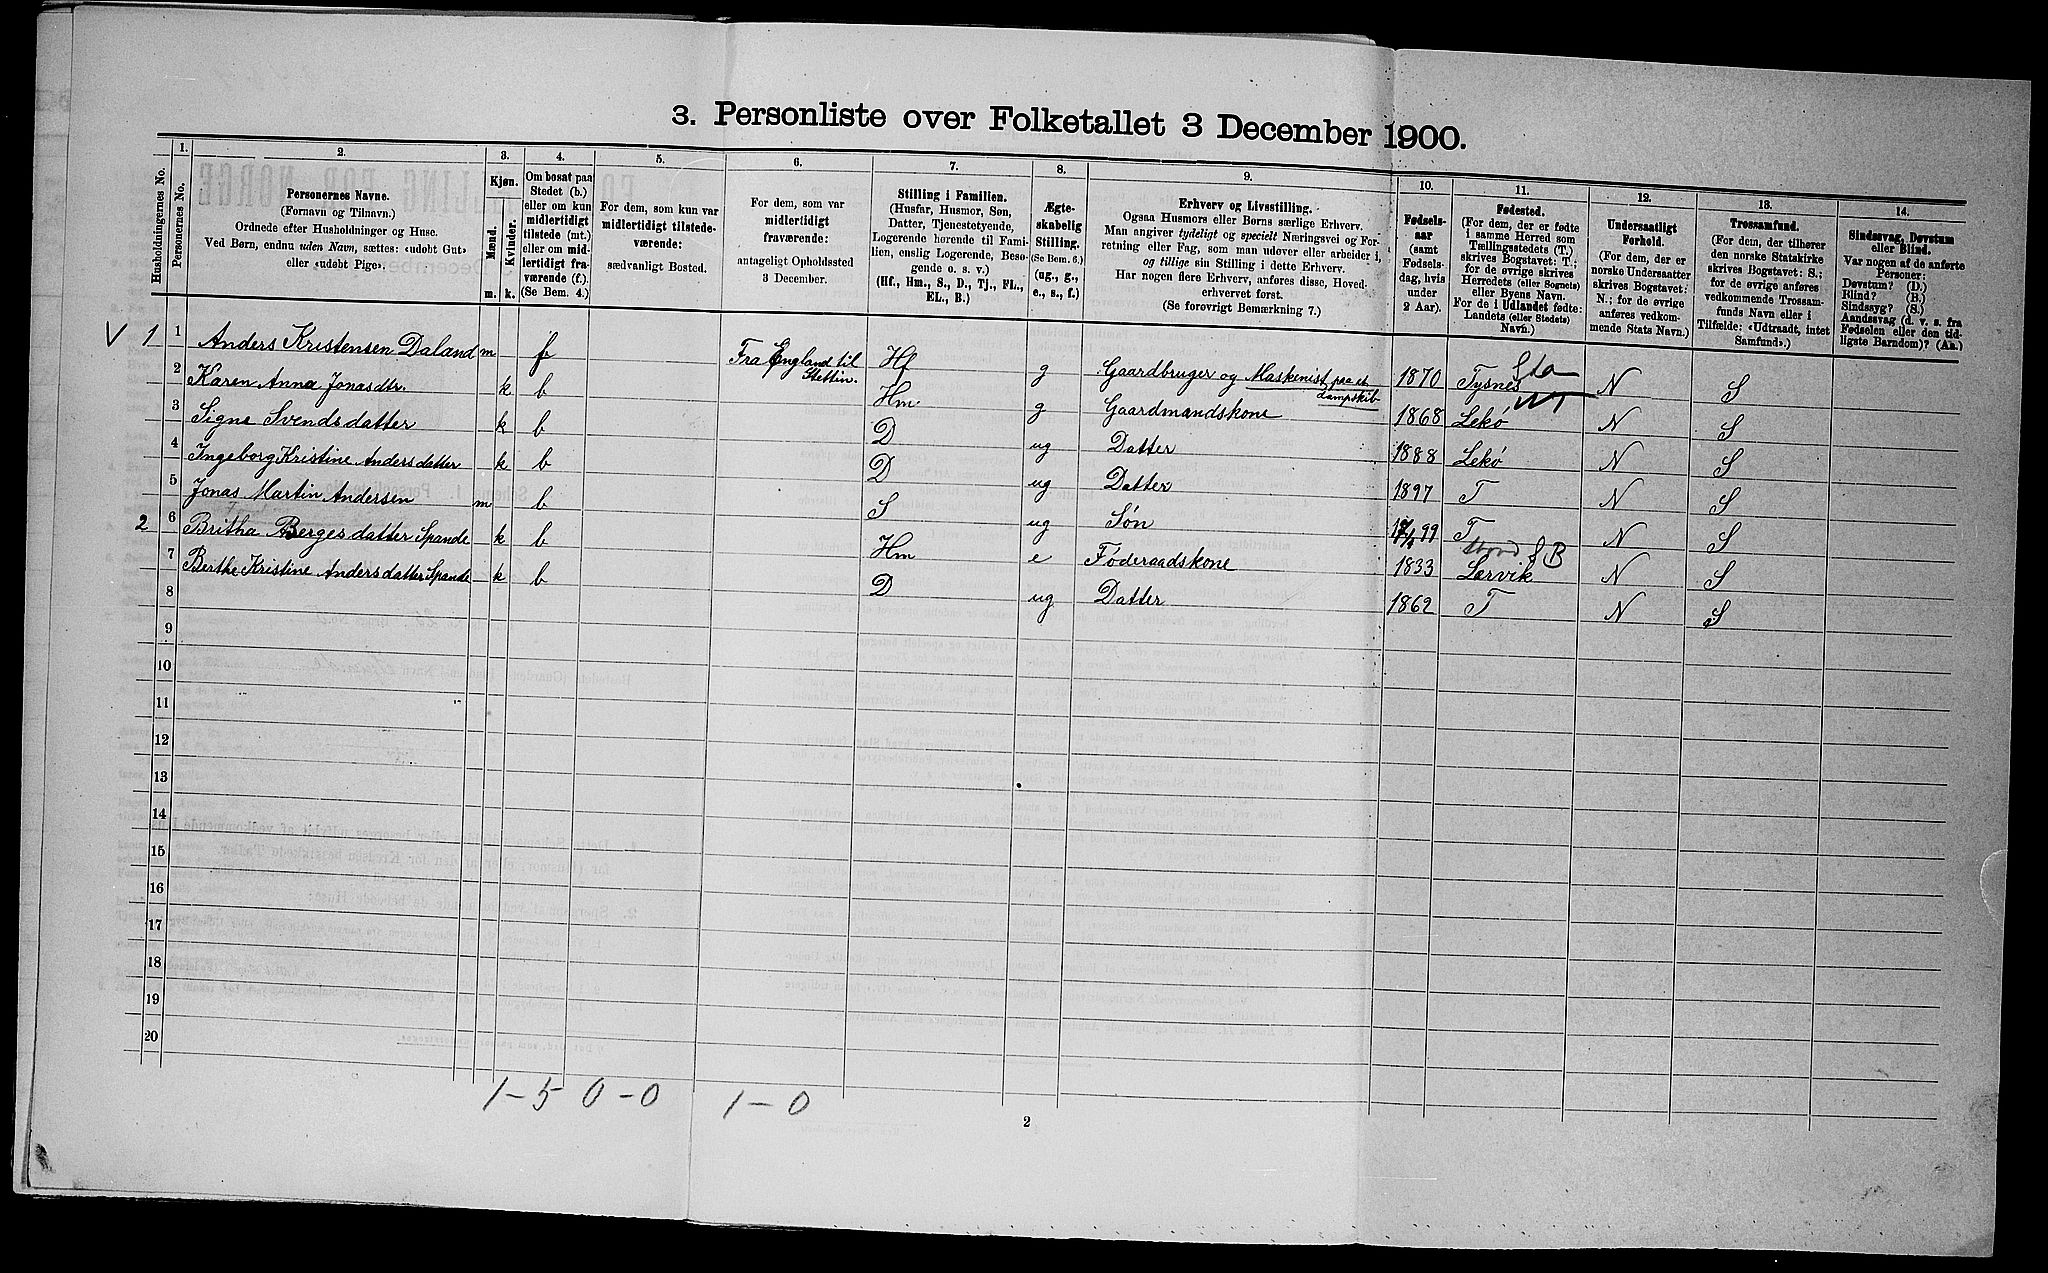 3. Personliste over Folketallet 3 December 1900.
1. 2. 3. 4. 5. 6. 7. 8. 9. 10. 11. 12. 13. 14.
Husholdningernes No.
Personernes No.
Personernes Navne.
(Fornavn og Tilnavn.)
Ordnede efter Husholdninger og Huse.
Ved Børn, endnu uden Navn, sættes: «udøbt Gut»
eller «udøbt Pige».
Kjøn.
Mænd.
Kvinder.
m. k.
Om bosat paa
Stedet (b.)
eller om kun
midlertidigt
tilstede (mt.)
eller om mid-
lertidigt fra-
værende (f.)
(Se Bem. 4.)
For dem, som kun var
midlertidigt tilstede-
værende:
sædvanligt Bosted.
For dem, som var
midlertidigt
fraværende:
antageligt Opholdssted
3 December.
Stilling i Familien.
(Husfar, Husmor, Søn,
Datter, Tjenestetyende,
Logerende hørende til Fami-
lien, enslig Logerende, Besø-
gende o. s. v.)
(Hf., Hm., S., D., Tj., FL.,
EL., B.)
Ægte-
skabelig
Stilling.
(Se Bem. 6.)
(ug., g.,
e., s., f.)
Erhverv og Livsstilling.
Ogsaa Husmors eller Børns særlige Erhverv.
Man angiver tydeligt og specielt Næringsvei og For-
retning eller Fag, som man udøver eller arbeider i,
og tillige sin Stilling i dette Erhverv.
Har nogen flere Erhverv, anføres disse, Hoved-
erhvervet først.
(Se forøvrigt Bemærkning 7.)
Fødsels-
aar
(samt
Fødsels-
dag, hvis
under
2 Aar).
Fødested.
(For dem, der er fødte
i samme Herred som
Tællingsstedets (T.)
skrives Bogstavet: T.;
for de øvrige skrives
Herredets (eller Sognets)
eller Byens Navn.
For de i Udlandet fødte:
Landets (eller Stedets)
Navn.)
Undersaatligt
Forhold.
(For dem, der er
norske Undersaatter
skrives Bogstavet:
N.; for de øvrige
anføres vedkom-
mende Stats Navn.)
Trossamfund.
(For dem, der tilhører
den norske Statskirke
skrives Bogstavet: S.;
for de øvrige anføres
vedkommende Trossam-
funds Navn eller i
Tilfælde: «Udtraadt, intet
Samfund».)
Sindssvag, Døvstum
eller Blind.
Var nogen af de anførte
Personer:
Døvstum? (D.)
Blind? (B.)
Sindssyg? (S.)
Aandssvag (d. v. s. fra
Fødselen eller den tid-
ligste Barndom)? (Aa.)
V 1 1 Anders Kristensen Daland m f Fra England til Stettin. Hf g Gaardbruger og Maskenist paa et dampskib 1870 Tysnes N S
2 Karen Anna Jonasdtr. k b Hm. g Gaardmandskone 1868 Lekø N S
3 Signe Svendsdatter k b D ug Datter 1888 Lekø N S
4 Ingeborg Kristine Andersdatter k b D ug Datter 1897 T N S
5 Jonas Martin Andersen m b S ug Søn 99 T N S
2 6 Britha Bergesdatter Spande k b Hm e Føderaadskone 1833 Lervik N S
7 Berthe Kristine Andersdatter Spande k b D ug Datter 1862 T N S
8
9
10
11
12
13
14
15
16
17
18
19
20
1-5 0-0 1-0
2